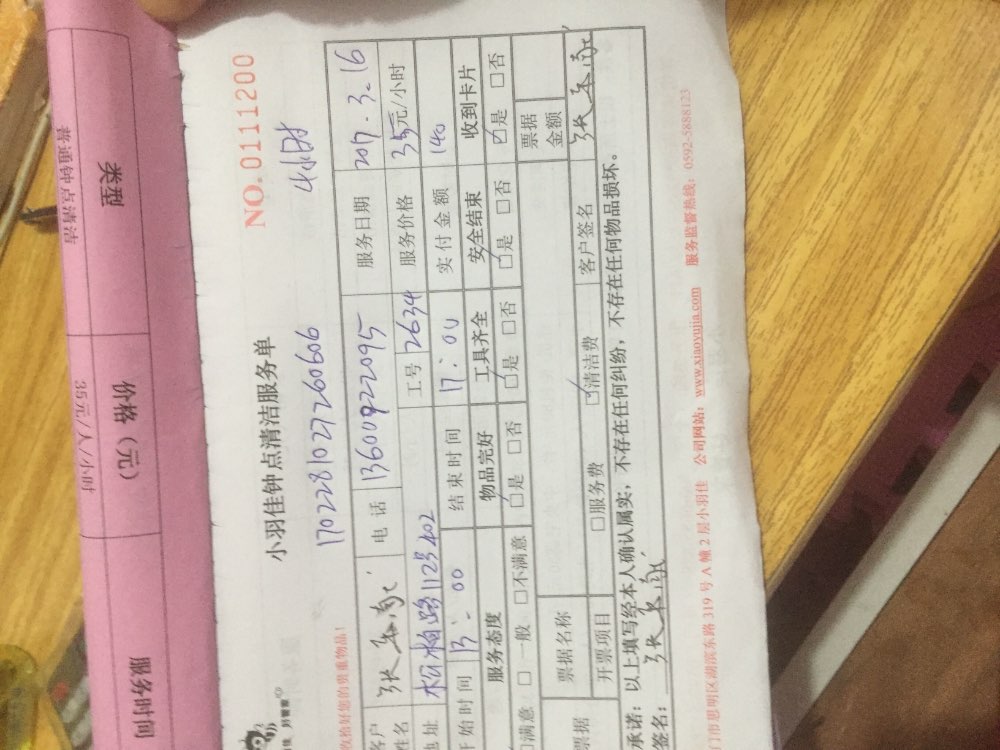 类型 价格（元） 服务时间
普通钟点清洁 35元/人/小时
小羽佳钟点清洁服务单 NO.0111200
17022810272260606 4小时
收拾好您的贵重物品！
客户姓名 电话 13600922095 服务日期 2017.3.16
工号 2634 服务价格 35元/小时
地址 松柏路112号402
开始时间 13:00 结束时间 17:00 实付金额 140
服务态度 物品完好 工具齐全 安全结束 收到卡片
□满意 □一般 □不满意 □是 □否 □是 □否 □是 □否 ☑是 □否
票据 票据名称 票据金额
开票项目 □服务费 ☑清洁费 客户签名 张
承诺：以上填写经本人确认属实，不存在任何纠纷，不存在任何物品损坏。
签名： 张
门市思明区湖滨东路 319 号 A 幢 2 层小羽佳 公司网站：www.xiaoyujia.com 服务监督热线：0592-5888123